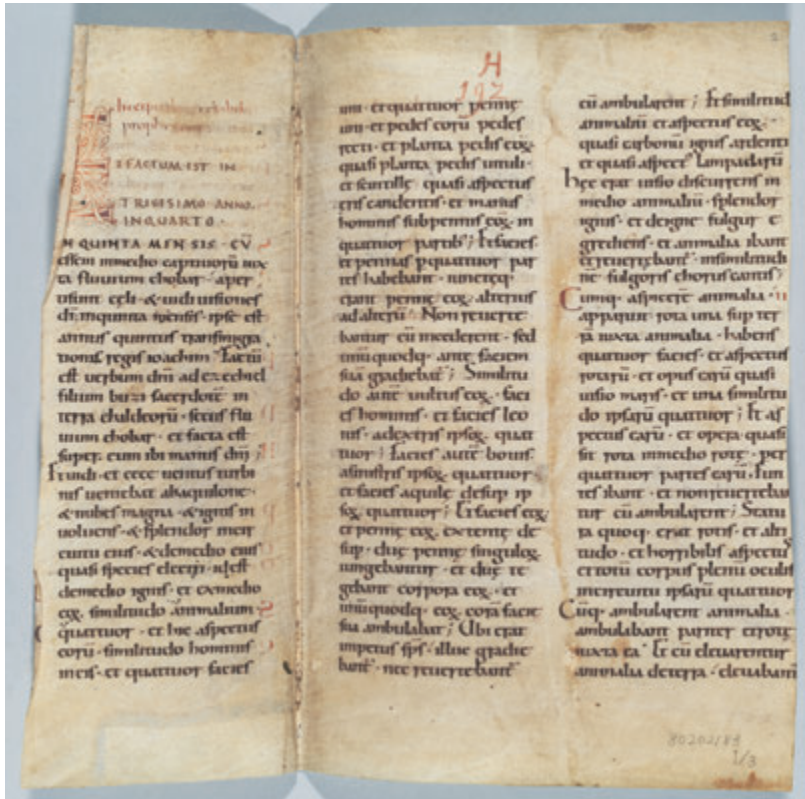 ET FACTUM EST IN
TRIGESIMO ANNO.
IN QUARTO.
IN QUINTA MENSIS. CŪ
essem in medio captiuorū iux
ta fluuium chobar. aper
ti sunt cęli. & uidi uisiones
dī. in quinta mensis. ipse est
annus quintus transmigra
tionis regis ioachim. Factū
est uerbum dn̄i ad ezechiel
filium buzi sacerdotē. in
terra chaldeorū. secus flu
uium chobar. et facta est
super eum ibi manus dn̄i;
Et uidi. et ecce uentus turbi
nis ueniebat ab aquilone.
& nubes magna. & ignis in
uoluens. & splendor in cir
cuitu eius. & de medio eius
quasi species electri. id est
de medio ignis. et ex medio
eoꝝ. similitudo animalium
quattuor. et hic aspectus
eorū. similitudo hominis
in eis. et quattuor facies
H
192
uni. et quattuor pennę
uni. et pedes eorū pedes
recti. et planta pedis eoꝝ.
quasi planta pedis uituli.
et scintillę quasi aspectus
ęris candentis. et manus
hominis sub pennis eoꝝ. in
quattuor partib; ; Et facies.
et pennas p quattuor par
tes habebant. iunctęq.
erant pennę eoꝝ. alterius
ad alterū. Non reuerte
bantur cū incederent. sed
unū quodq. ante faciem
suā gradiebat; Similitu
do autē uultus eoꝝ. faci
es hominis. et facies leo
nis. a dextris ipsoꝝ. quat
tuor; Facies autē bouis.
a sinistris ipsoꝝ. quattuor.
et facies aquilę desup ip
soꝝ. quattuor; Et facies eoꝝ
et pennę eoꝝ. extentę de
sup. duę pennę singuloꝝ
iungebantur. et duę te
gebant corpora eoꝝ. et
unū quodq. eoꝝ. corā facie
sua ambulabat; Ubi erat
impetus sp̄s. illuc gradie
bant. nec reuertebant
cū ambularent; Et similitud
animaliū et aspectus eoꝝ.
quasi carbonū ignis ardenti
et quasi aspect lampadarū
hęc erat uisio discurrens in
medio animaliū. splendor
ignis. et de igne fulgur e
grediens. et animalia ibant
et reuertebant. in similitudi
nē fulgoris choruscantis;
Cumq. aspicerē animalia.
apparuit rota una sup ter
rā iuxta animalia. habens
quattuor facies. et aspectus
rotarū. et opus earū quasi
uisio maris. et una similitu
do ipsarū quattuor; Et as
pectus earū. et opera. quasi
sit rota in medio rotę. per
quattuor partes earū. Eun
tes ibant. et non reuerteban
tur cū ambularent; Statu
ra quoq. erat rotis. et alti
tudo. et horribilis aspectus
et totū corpus plenū oculis
in circuitu ipsarū quattuor
Cūq. ambularent animalia.
ambulabant pariter et rotę
iuxta ea. Et cū eleuarentur
animalia de terra. eleuabant
80202183
1/3